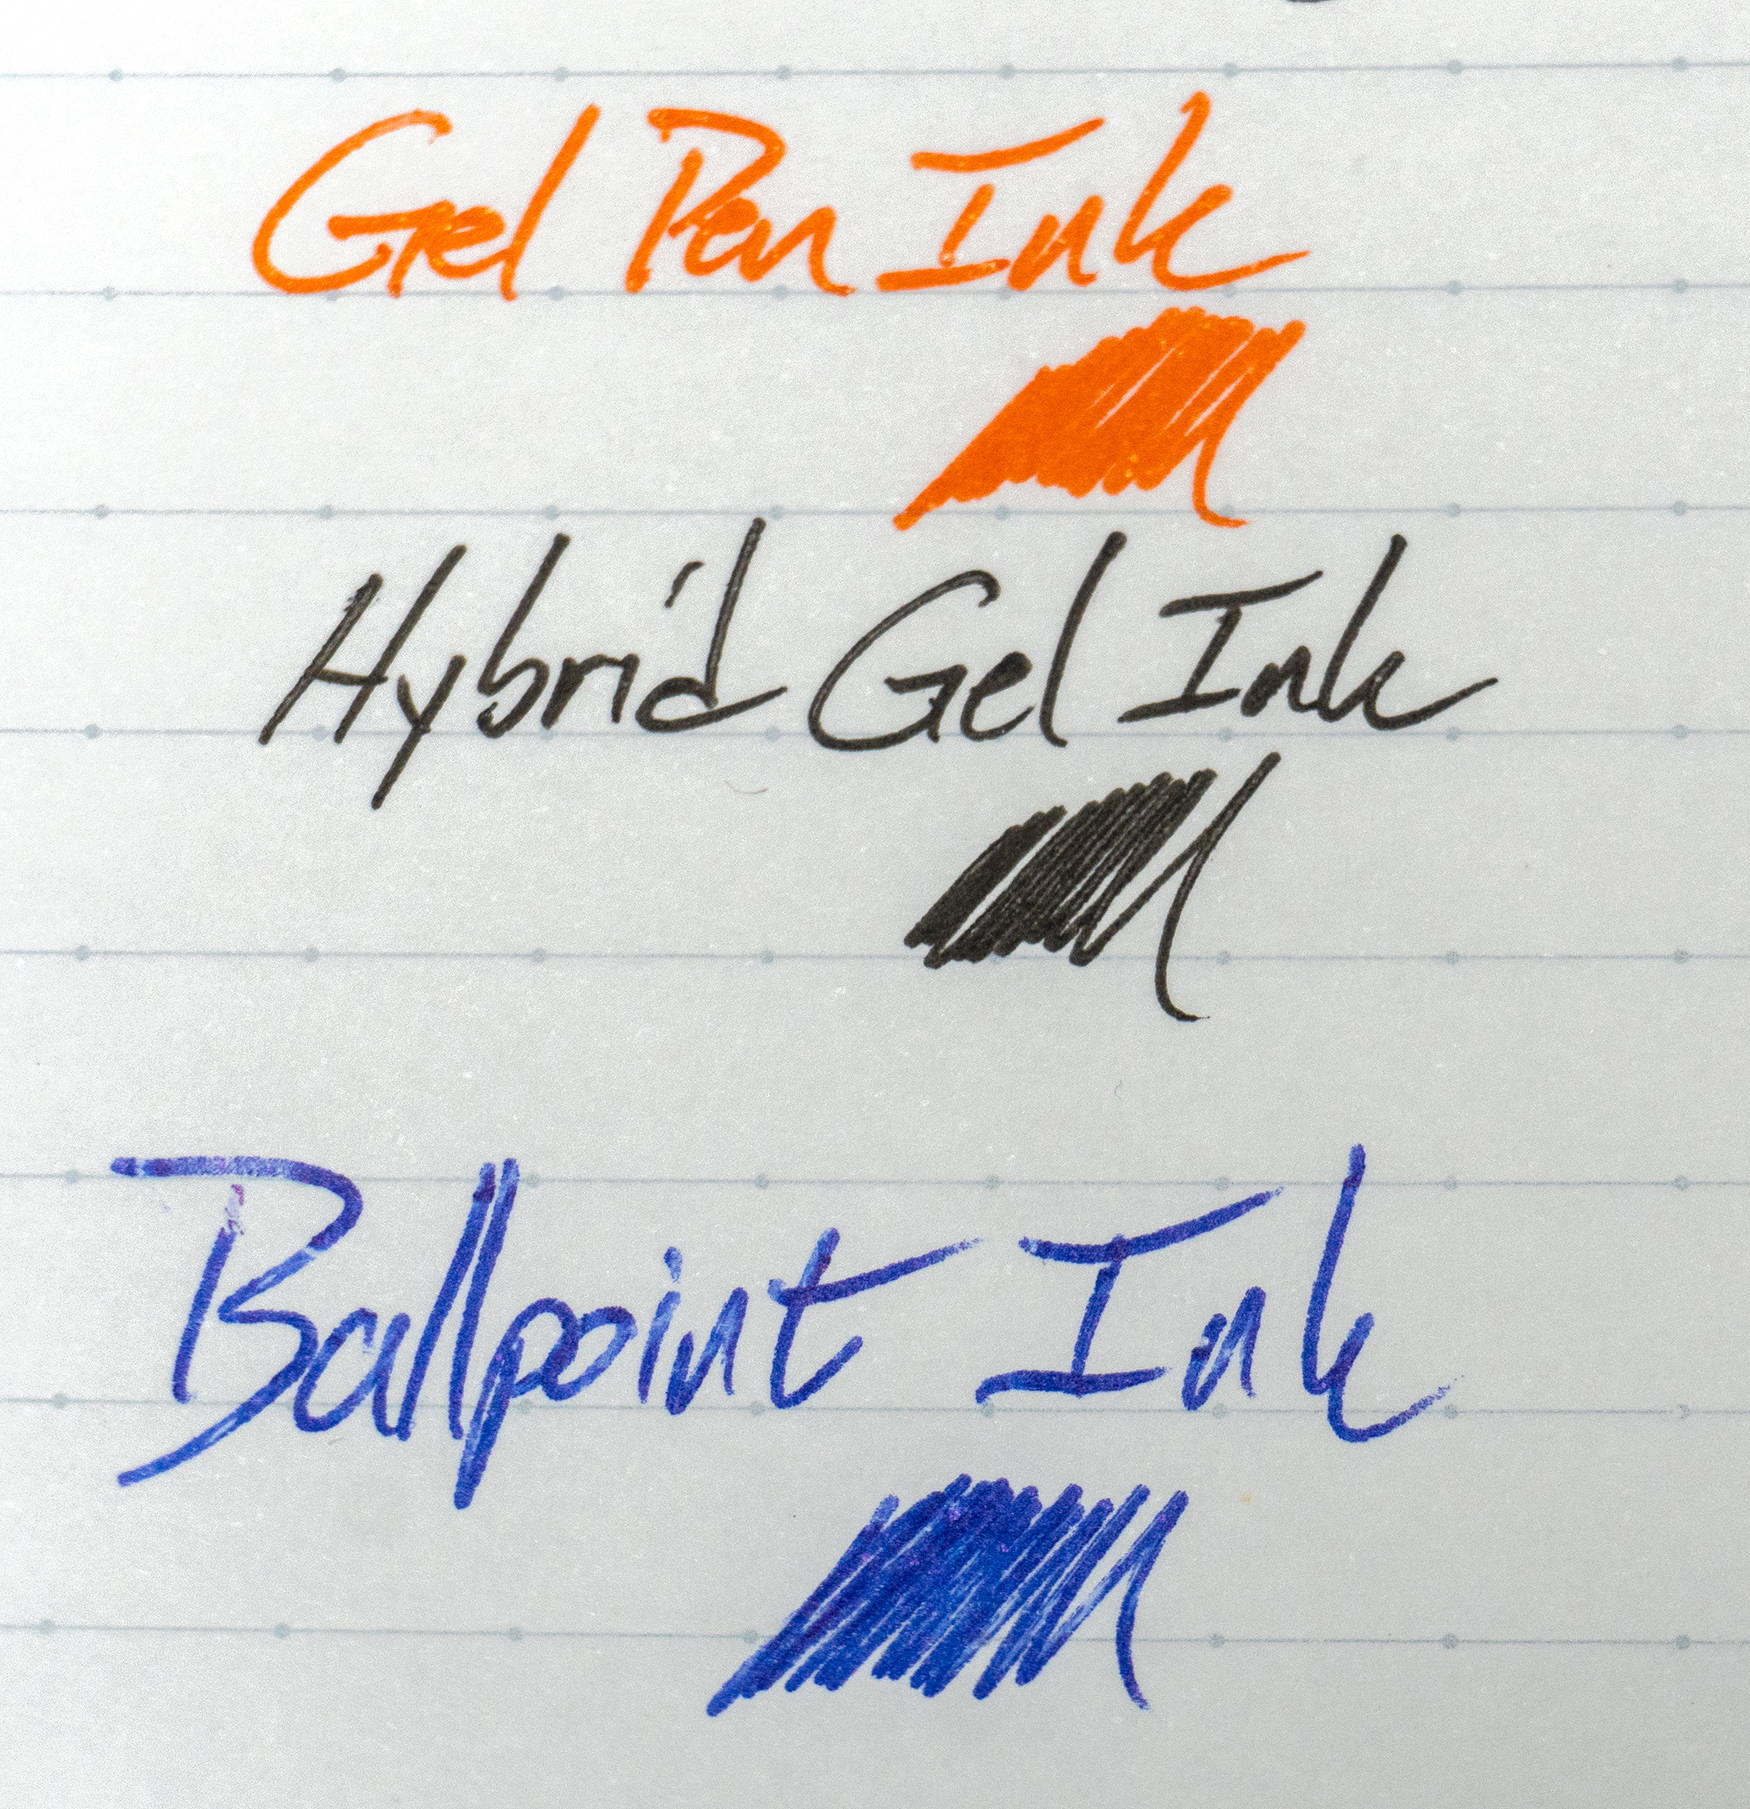 Gel Pen Ink
Hybrid Gel Ink
Ballpoint Ink